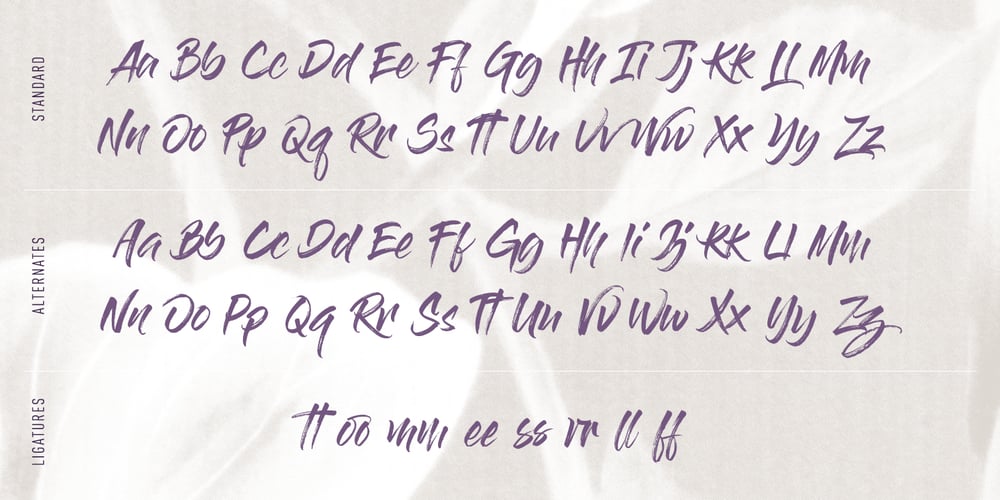 STANDARD
Aa Bb Cc Dd Ee Ff Gg Hh Ii Jj Kk Ll Mm
Nn Oo Pp Qq Rr Ss Tt Uu Vv Ww Xx Yy Zz
ALTERNATES
Aa Bb Cc Dd Ee Ff Gg Hh Ii Jj Kk Ll Mm
Nn Oo Pp Qq Rr Ss Tt Uu Vv Ww Xx Yy Zz
LIGATURES
tt oo mm ee ss rr ll ff